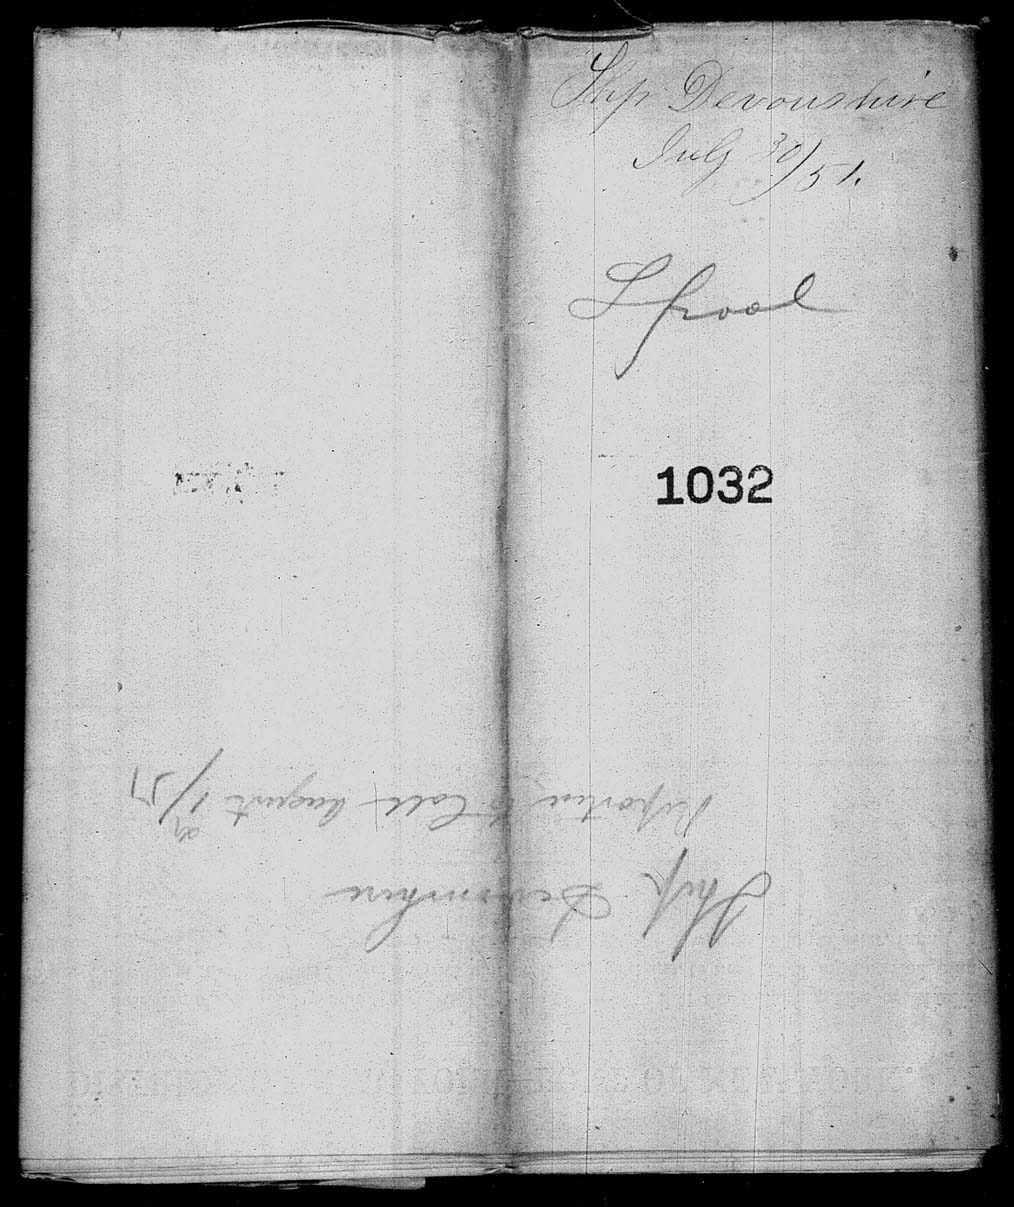 Ship Devonshire
July 30/51.
Lpool
1032
Ship Devonshire
Reported to Coll August 1/51